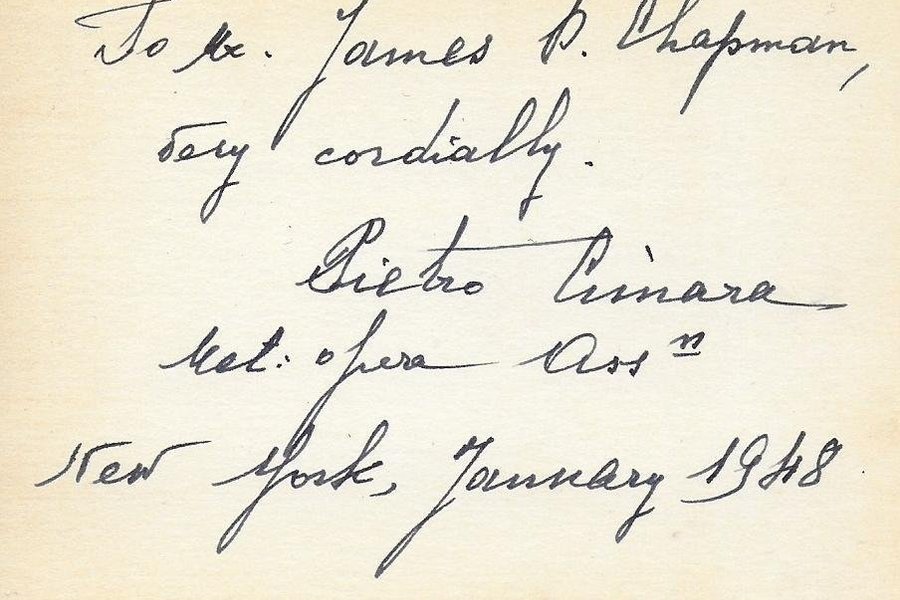 To Mr. James P. Chapman,
very cordially.
Pietro Cimara
Met: opera Assⁿ
New York, January 1948